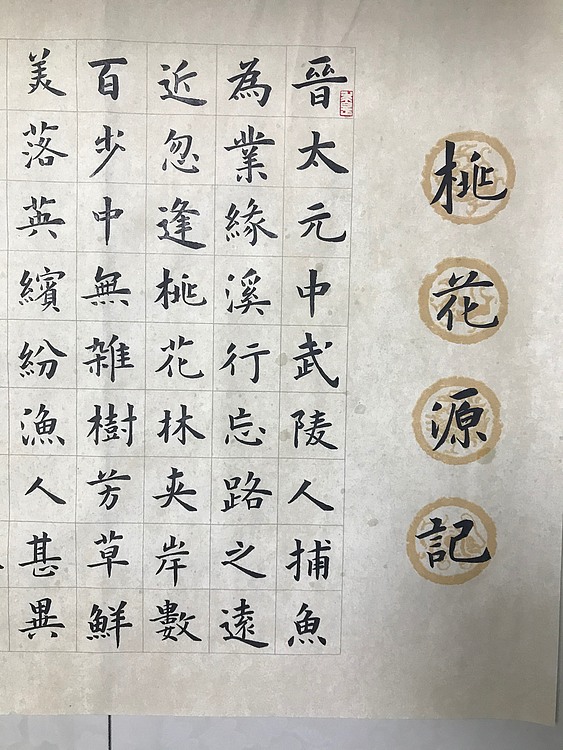 桃花源記
晉太元中武陵人捕魚
為業緣溪行忘路之遠
近忽逢桃花林夾岸數
百步中無雜樹芳草鮮
美落英繽紛漁人甚異